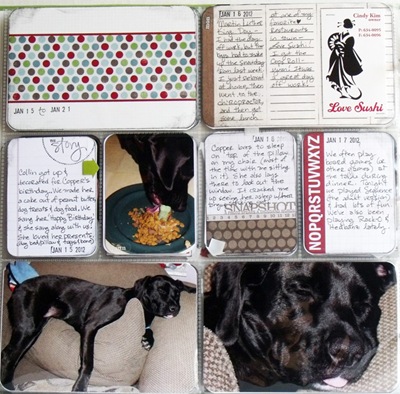 JAN 15 to JAN 21
JAN 16 2012
Martin Luther
King Day -
I had the day
off work, but the
boys had to make
up the Snowday
from last week.
I just relaxed
at home, then
went to the
chiropractor,
and then got
some lunch
at one of my
favorite
restaurants
in town -
Love Sushi!
I got the
Cali Roll -
yum! It was
a great day
off work!
Cindy Kim
Love Sushi
my
Story
Collin got up &
decorated for Copper's
birthday. We made her
a cake out of peanut butter,
dog treats & dog food. We
sang her "Happy Birthday"
& she sang along with us!
She loved her presents
dog bed/pillow & toys (bone)
JAN 15 2012
JAN 16
Copper loves to sleep
on top of the pillow
on my chair (most of
the time with me sitting
in it). She also lays
there to look out the
window. It cracked me
up seeing her asleep when
SNAPSHOT
NOPQRSTUVWXYZ
JAN 17 2012
We often play
board games (or
other games) at
the table during
dinner. Tonight
we played Sequence
(the adult version)
& had lots of fun.
We've also been
playing Racko &
Headbanz lately.